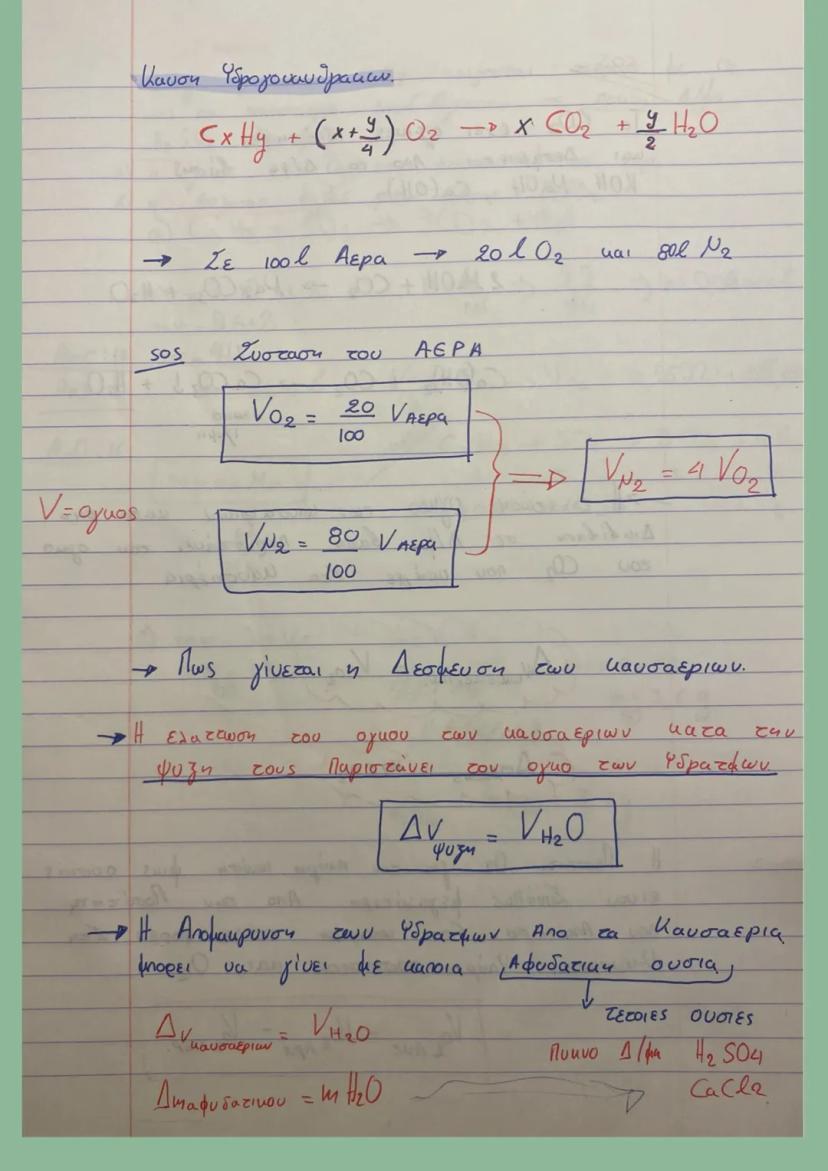 Καυση Υδρογονανθρακων.
CxHy + (x+y/4) O2 → x CO2 + y/2 H2O
→ Σε 100l Αερα → 20l O2 και 80l N2
SOS Συσταση του ΑΕΡΑ
VO2 = 20/100 VΑΕρα
VN2 = 4 VO2
V=ογκος
VN2 = 80/100 VΑΕρα
→ Πως γίνεται η Δεσμευση των καυσαεριων.
→ Η ελαττωση του ογκου των καυσαεριων κατα την
ψυξη τους Παριστάνει τον ογκο των Υδρατμων
ΔVψυξη = VH2O
→ Η Απομακρυνση των Υδρατμων Απο τα Καυσαερια
μπορει να γίνει με καποια Αφυδατικη ουσια
τετοιες ουσιες
ΔVκαυσαεριων = VH2O
Πυκνο Δ/μα H2SO4
Δmαφυδατικου = mH2O
CaCl2